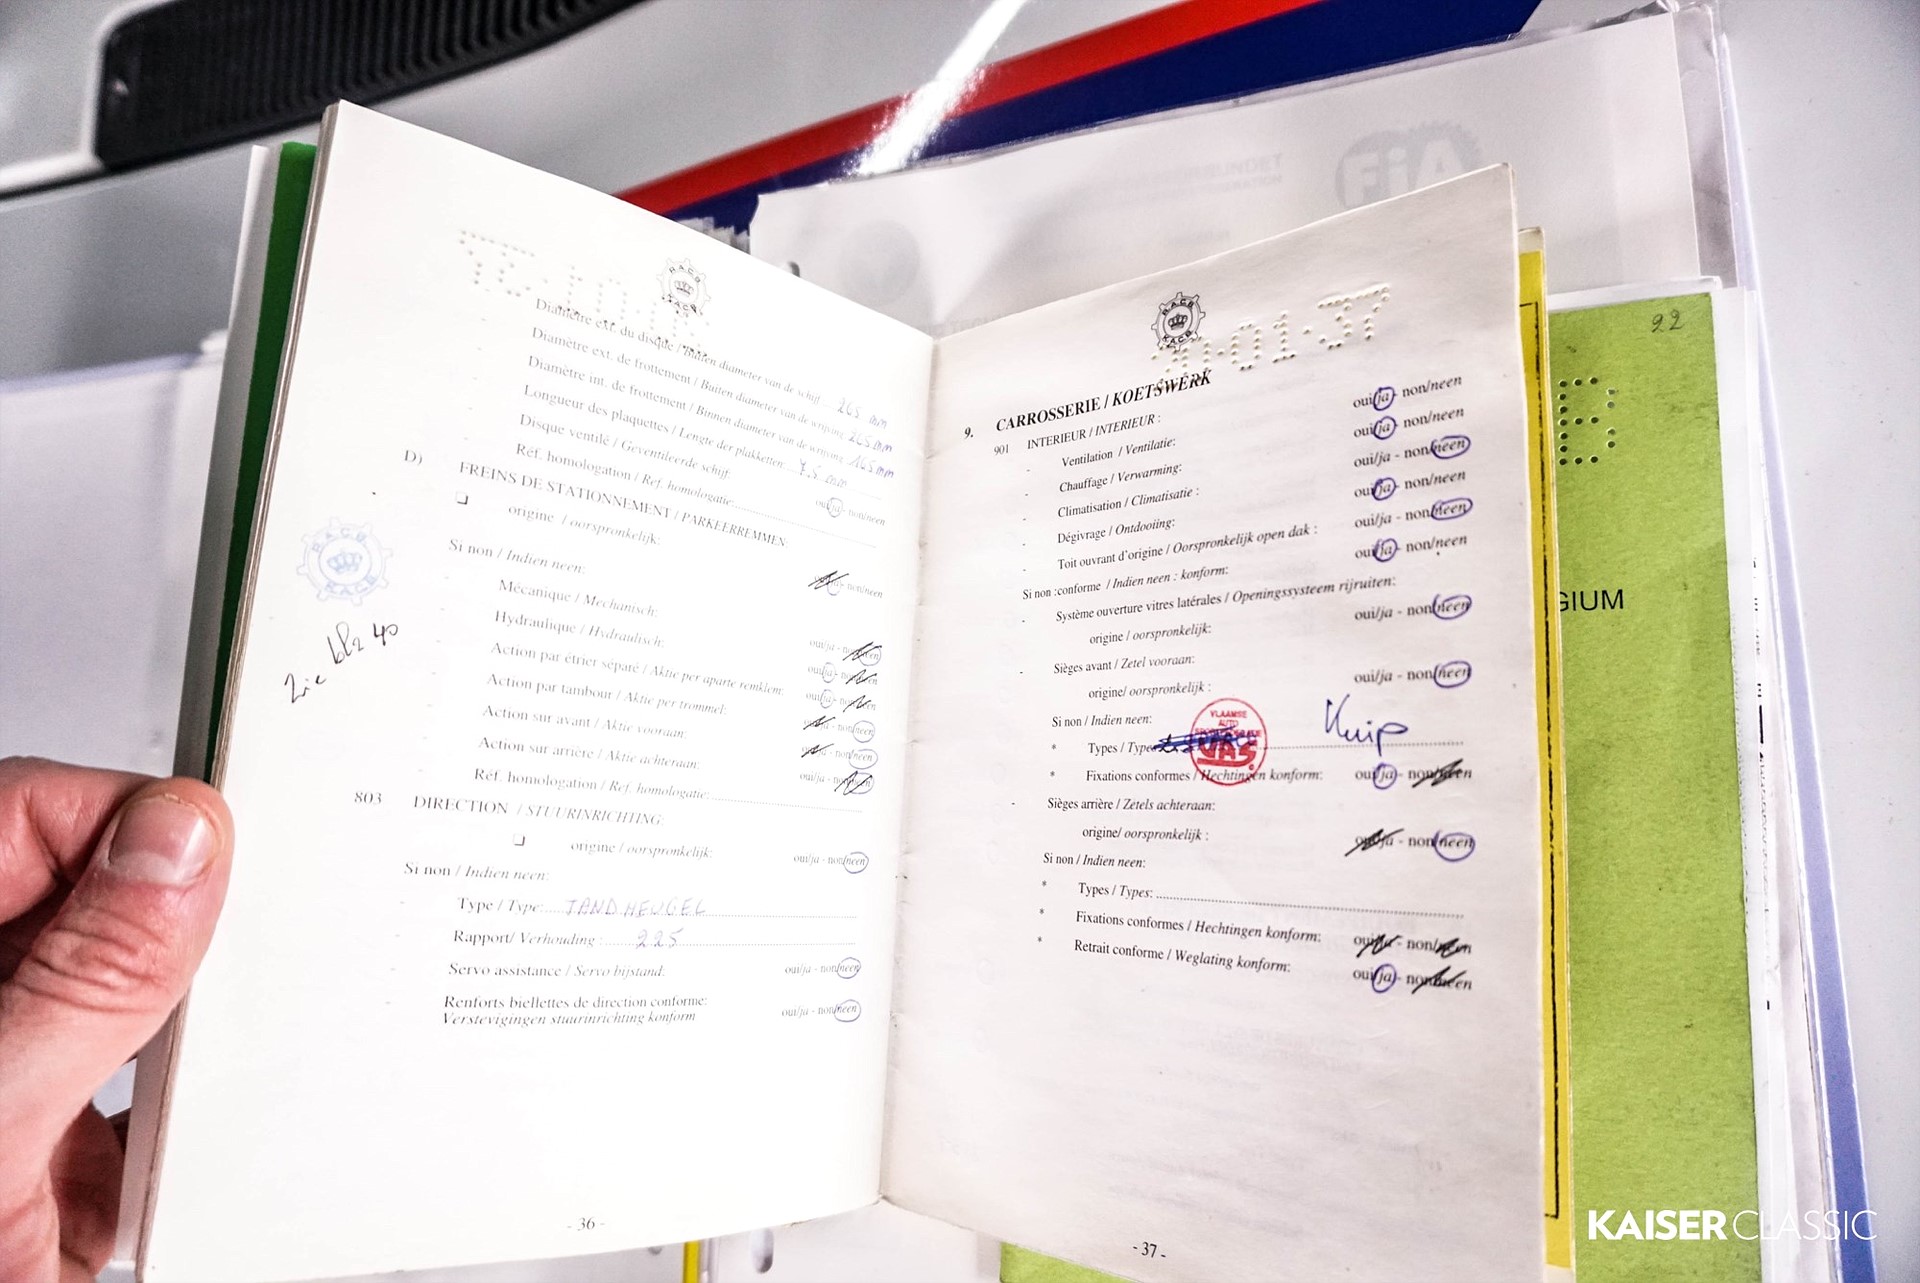 RACB
KACB
Diamètre ext. du disque / Buiten diameter van de schijf: 265 mm
Diamètre ext. de frottement / Buiten diameter van de wrijving: 265 mm
Diamètre int. de frottement / Binnen diameter van de wrijving: 165 mm
Longueur des plaquettes / Lengte der plakketten: 7.5 mm
Disque ventilé / Geventileerde schijf: oui/ja - non/neen
Réf. homologation / Ref. homologatie:
D) FREINS DE STATIONNEMENT / PARKEERREMMEN:
origine / oorspronkelijk: non/neen
Si non / Indien neen:
Mécanique / Mechanisch: oui/ja
Hydraulique / Hydraulisch: oui/ja
Action par étrier séparé / Aktie per aparte remklem: oui/ja
Action par tambour / Aktie per trommel: non/neen
Action sur avant / Aktie vooraan: non/neen
Action sur arrière / Aktie achteraan: oui/ja - non/neen
Réf. homologation / Ref. homologatie:
RACB
KACB
Zie blz 40
803 DIRECTION / STUURINRICHTING:
origine / oorspronkelijk: oui/ja - non/neen
Si non / Indien neen:
Type / Type: TANDHEUGEL
Rapport/ Verhouding : 225
Servo assistance / Servo bijstand: oui/ja - non/neen
Renforts biellettes de direction conforme: oui/ja - non/neen
Verstevigingen stuurinrichting konform
- 36 -
RACB
KACB
01-37
9. CARROSSERIE / KOETSWERK
901 INTERIEUR / INTERIEUR :
- Ventilation / Ventilatie: oui/ja - non/neen
- Chauffage / Verwarming: oui/ja - non/neen
- Climatisation / Climatisatie : oui/ja - non/neen
- Dégivrage / Ontdooiing: oui/ja - non/neen
- Toit ouvrant d'origine / Oorspronkelijk open dak : oui/ja - non/neen
Si non :conforme / Indien neen : konform: oui/ja - non/neen
- Système ouverture vitres latérales / Openingssysteem rijruiten:
origine / oorspronkelijk: oui/ja - non/neen
- Sièges avant / Zetel vooraan:
origine/ oorspronkelijk : oui/ja - non/neen
Si non / Indien neen:
* Types / Types Kuip
VLAAMSE
AUTO
VAS
* Fixations conformes / Hechtingen konform: oui/ja - non/neen
- Sièges arrière / Zetels achteraan:
origine/ oorspronkelijk : oui/ja - non/neen
Si non / Indien neen:
* Types / Types:
* Fixations conformes / Hechtingen konform: oui/ja - non/neen
* Retrait conforme / Weglating konform: oui/ja - non/neen
- 37 -
22
B
GIUM
KAISER CLASSIC